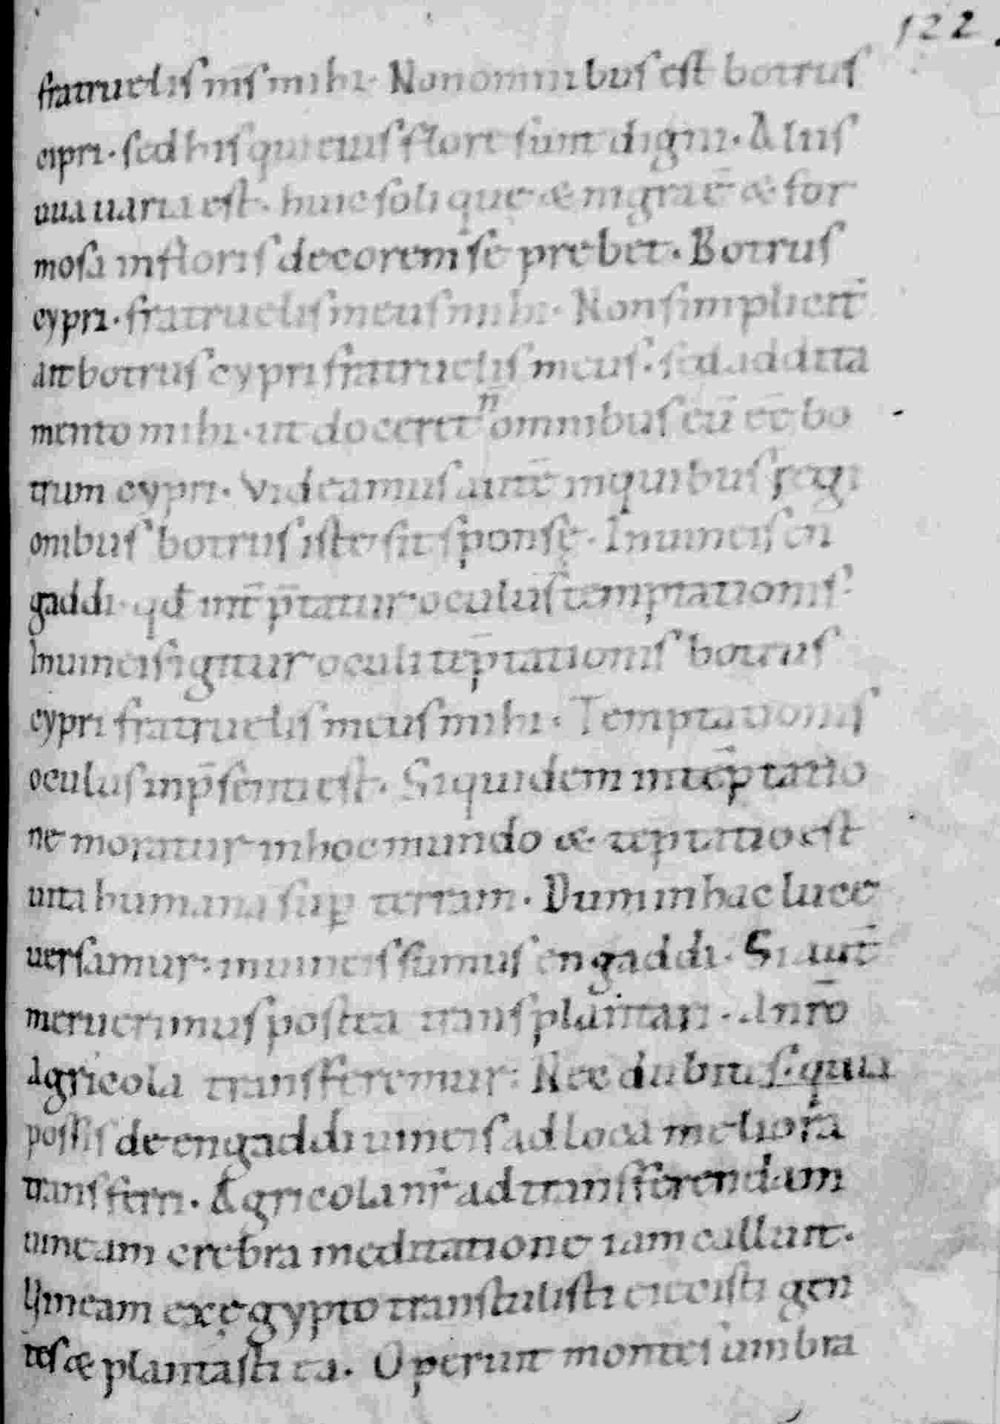 122.
fratruelis m̅s mihi. Non omnibus est botrus
cipri. sed his qui eius flore sunt digni. Aliis
uua uaria est. huic soli quę & nigra ē & for
mosa in floris decorem se prebet. Botrus
cypri. fratruelis meus mihi. Non simplicit̅
ait botrus cypri fratruelis meus. sed addita
mento mihi. ut doceret n̅ omnibus eū eē bo
trum cypri. Videamus autē in quibus regi
onibus botrus iste sit sponsę. In uineis en
gaddi. qđ int̅ p̅tatur oculus temptationis.
In uineis igitur oculi tep̅tationis botrus
cypri fratruelis meus mihi. Temptationis
oculus in p̅senti est. Siquidem in tēptatio
ne moratur in hoc mundo & tēptatio est
uita humana sup̱ terram. Dum in hac luce
uersamur. in uineis sumus engaddi. Si aut̅
meruerimus postea transplantari. A nr̅o
Agricola transferemur. Nec dubites. quia
possis de engaddi uineis ad loca meliora
transferri. Agricola nr̅ ad transferendam
uineam crebra meditatione iam calluit.
Vineam ex ęgypto transtulisti eiecisti gen
tes & plantasti ea. Operuit montes umbra